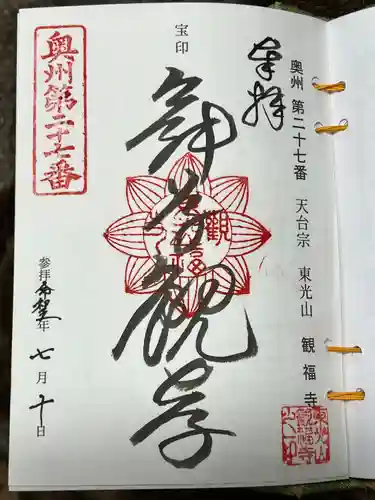 奉拝
奥州 第二十七番 天台宗 東光山 観福寺
東光山
観福寺
之印
宝印
観音
奥州第二十七番
参拝 令和 年 七月十日